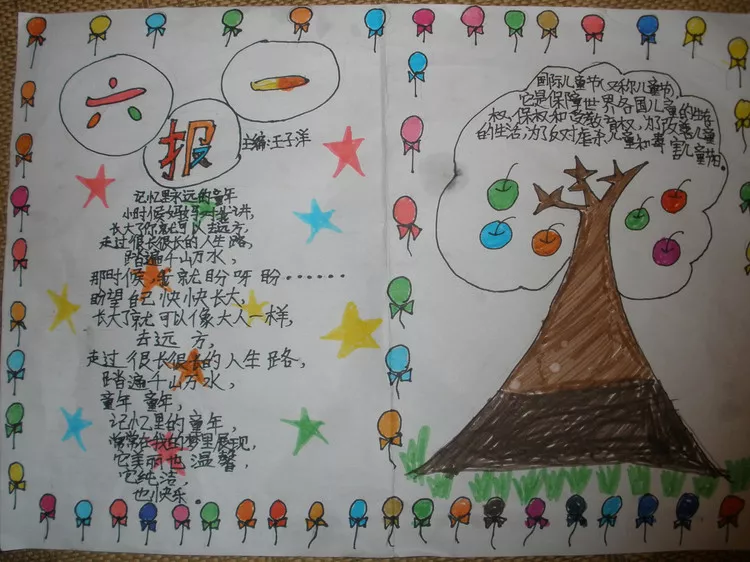 六一
报
主编:王子洋
记忆里永远的童年
小时候妈妈对着讲,
长大了你就可以去远方,
走过很长很长的人生路,
踏遍千山万水,
那时候我就盼呀盼……
盼望自己快快长大,
长大了就可以像大人一样,
去远方,
走过很长很长的人生路,
踏遍千山万水,
童年童年,
记忆里的童年,
常常在我的梦里展现,
它美丽也温馨,
它纯洁,
也快乐。
国际儿童节(又称儿童节)
它是保障世界各国儿童的生存
权、保权和受教育权,为了改善儿童
的生活,为了反对虐杀儿童和毒害儿童节。